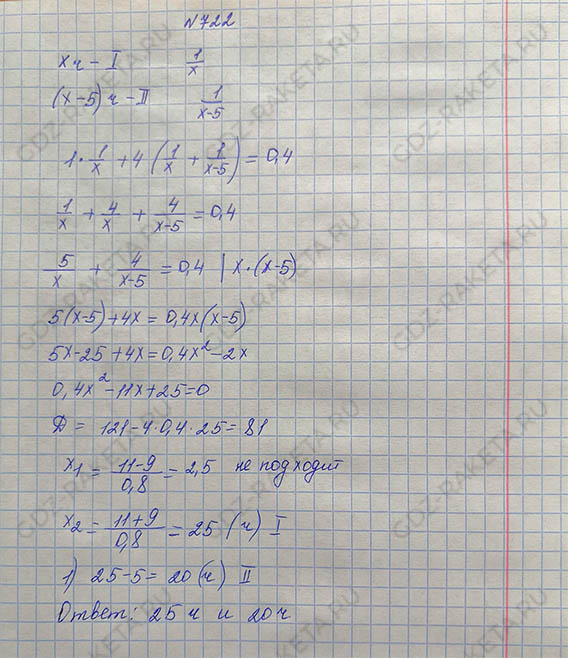 N722
x ч – I 1/x
(x–5) ч – II 1/(x–5)
1 · 1/x + 4 (1/x + 1/(x–5)) = 0,4
1/x + 4/x + 4/(x–5) = 0,4
5/x + 4/(x–5) = 0,4 | x · (x–5)
5(x–5)+4x = 0,4x(x–5)
5x–25+4x=0,4x²–2x
0,4x²–11x+25=0
D = 121–4·0,4·25=81
x₁ = (11–9)/0,8 = 2,5 не подходит
x₂ = (11+9)/0,8 = 25 (ч) I
1) 25–5= 20 (ч) II
Ответ: 25 ч и 20 ч
GDZ-RAKETA.RU